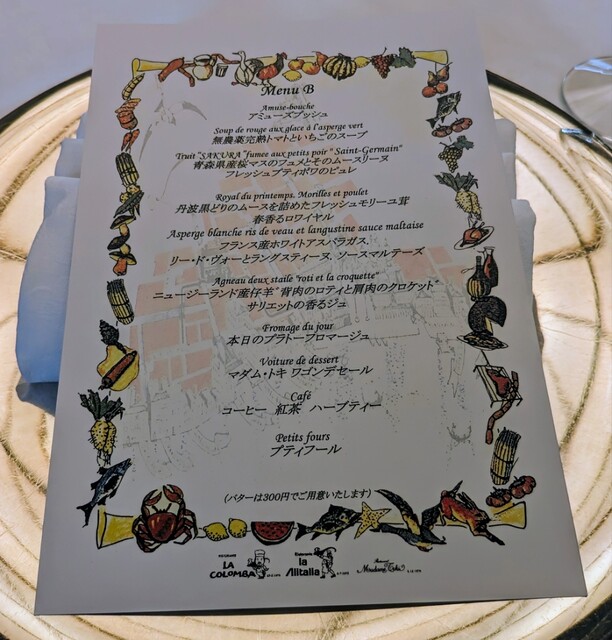 Menu B
Amuse-bouche
アミューズブッシュ
Soup de rouge aux glace à l'asperge vert
無農薬完熟トマトといちごのスープ
Truit "SAKURA" fumee aux petits poir " Saint-Germain"
青森県産桜マスのフュメとそのムースリーヌ
フレッシュプティポワのピュレ
Royal du printemps. Morilles et poulet
丹波黒どりのムースを詰めたフレッシュモリーユ茸
春香るロワイヤル
Asperge blanche ris de veau et langustine sauce maltaise
フランス産ホワイトアスパラガス、
リー・ド・ヴォーとラングスティーヌ、ソースマルテーズ
Agneau deux staile "roti et la croquette"
ニュージーランド産仔羊"背肉のロティと肩肉のクロケット"
サリエットの香るジュ
Fromage du jour
本日のプラトーフロマージュ
Voiture de dessert
マダム・トキ ワゴンデセール
Café
コーヒー 紅茶 ハーブティー
Petits fours
プティフール
(バターは300円でご用意いたします)
LA COLOMBA
la Alitalia
Madame Toki